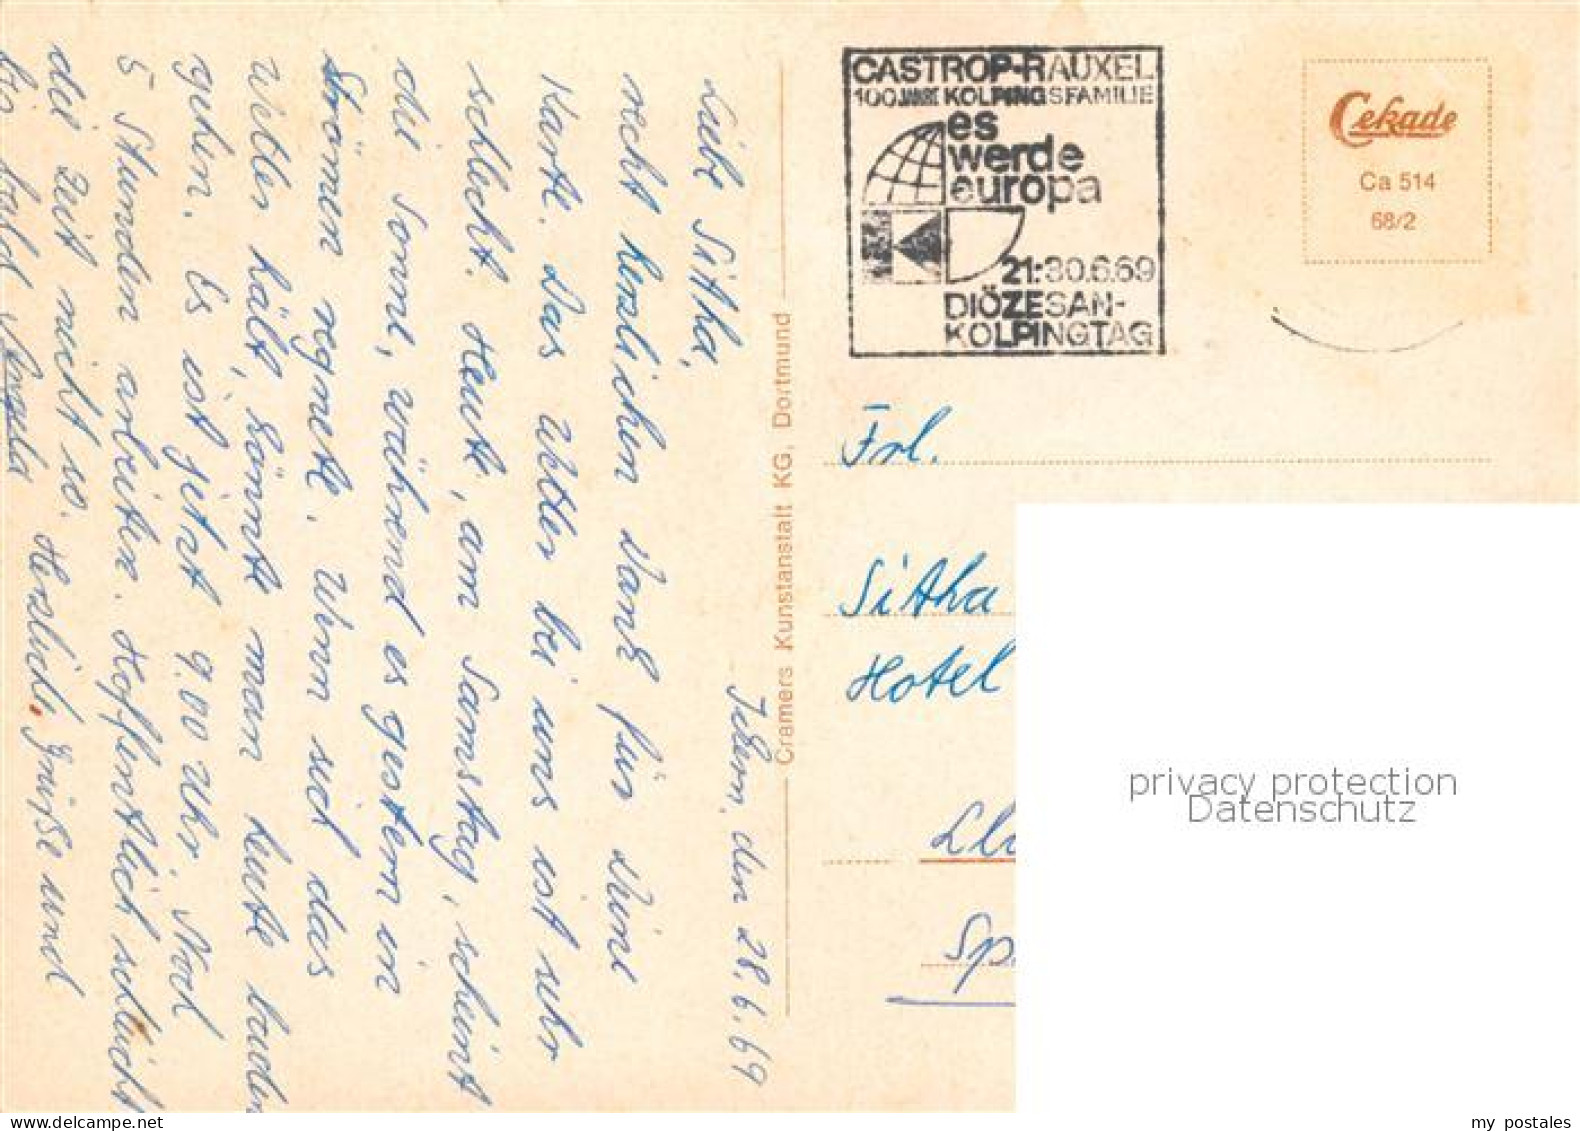 Ickern, den 28.6.69
Liebe Sitha,
recht herzlichen Dank für Deine
Karte. Das Wetter bei uns ist sehr
schlecht. Heute, am Samstag, scheint
die Sonne, während es gestern in
Strömen regnete. Wenn sich das
Wetter hält, könnte man heute baden
gehen. Es ist jetzt 9.00 Uhr. Noch
5 Stunden arbeiten. Hoffentlich schleicht
die Zeit nicht so. Herzliche Grüße und
bis bald Angela
Cramers Kunstanstalt KG, Dortmund
CASTROP-RAUXEL
100 JAHRE KOLPINGSFAMILIE
es
werde
europa
21:30.6.69
DIÖZESAN-
KOLPINGTAG
Cekade
Ca 514
68/2
Frl.
Sitha
Hotel
Sp
privacy protection
Datenschutz
my postales